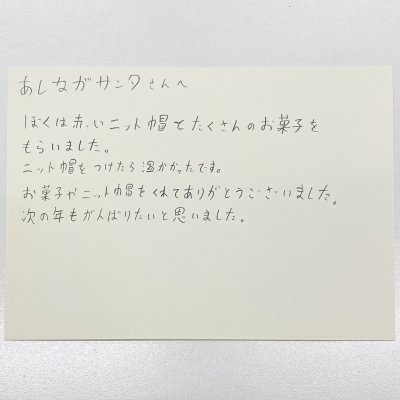 あしながサンタさんへ
ぼくは赤いニット帽とたくさんのお菓子を
もらいました。
ニット帽をつけたら温かかったです。
お菓子やニット帽をくれてありがとうございました。
次の年もがんばりたいと思いました。